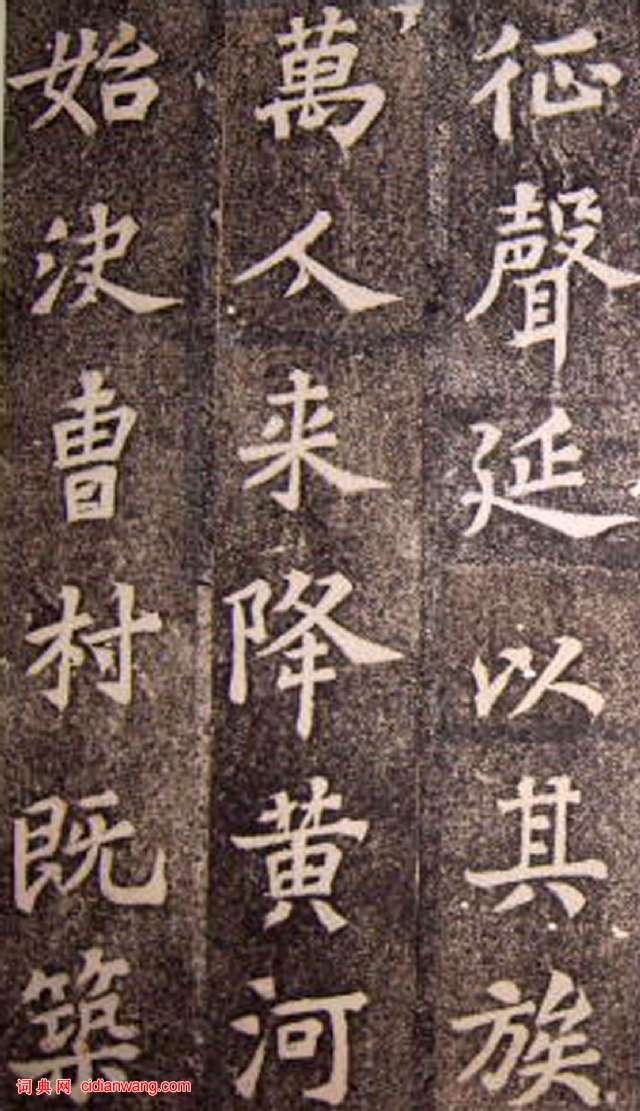 征聲延以其族
萬人来降黄河
始決曹村既築
词典网 cidianwang.com